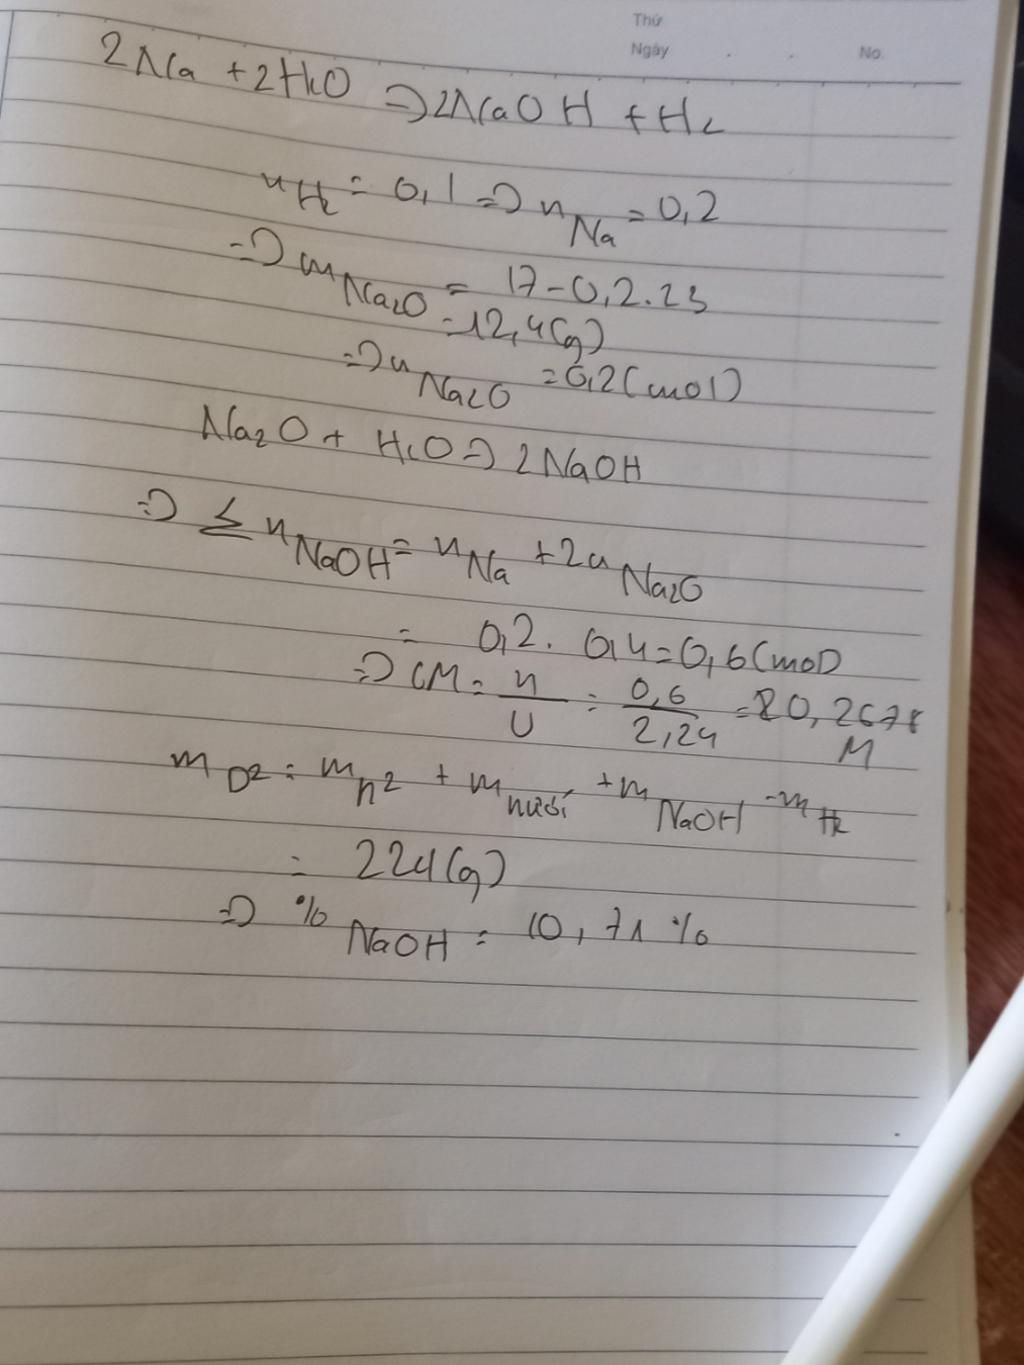 Thứ
Ngày . . No.
2Na + 2H2O => 2NaOH + H2
nH2 = 0,1 => nNa = 0,2
=> mNa2O = 17 - 0,2.23
= 12,4(g)
=> nNa2O = 0,2(mol)
Na2O + H2O => 2NaOH
=> Σ nNaOH = nNa + 2nNa2O
= 0,2. 0,4 = 0,6(mol)
=> CM = n/V = 0,6/2,24 = 0,2678 M
mD2 = mh2 + mnước + mNaOH - mH2
= 224(g)
=> % NaOH = 10,71 %